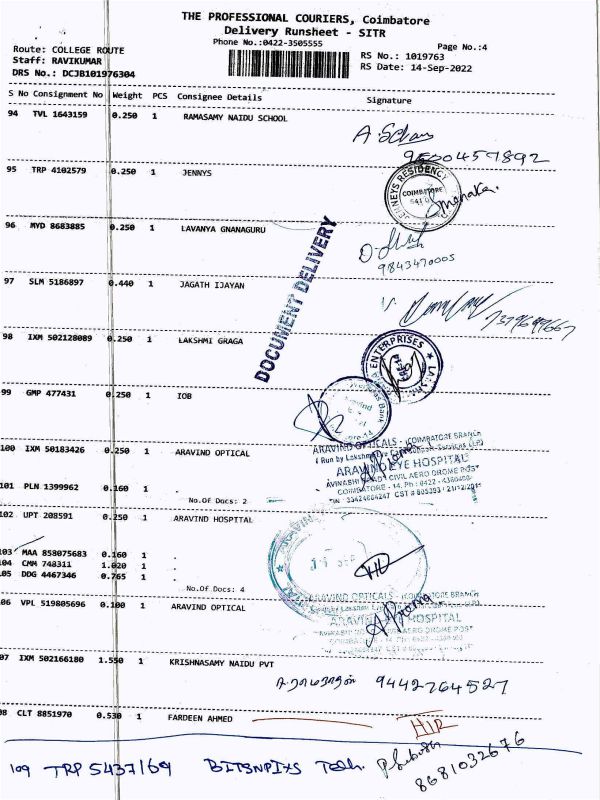 THE PROFESSIONAL COURIERS, Coimbatore
Delivery Runsheet - SITR
Phone No.:0422-3505555
Page No.:4
Route: COLLEGE ROUTE
Staff: RAVIKUMAR
DRS No.: DCJB101976304
RS No.: 1019763
RS Date: 14-Sep-2022
S No Consignment No Weight PCS Consignee Details Signature
94 TVL 1643159 0.250 1 RAMASAMY NAIDU SCHOOL
95 TRP 4102579 0.250 1 JENNYS
RESIDENCY
COIMBATORE
96 MYD 8683885 0.250 1 LAVANYA GNANAGURU
9843470005
DOCUMENT DELIVERY
97 SLM 5186897 0.440 1 JAGATH IJAYAN
98 IXM 502128089 0.250 1 LAKSHMI GRAGA
ENTERPRISES
99 GMP 477431 0.250 1 IOB
100 IXM 50183426 0.250 1 ARAVIND OPTICAL
ARAVIND OPTICALS - COIMBATORE BRANCH
ARAVIND EYE HOSPITAL
101 PLN 1399962 0.160 1 .
No.Of Docs: 2
102 UPT 208591 0.250 1 ARAVIND HOSPITAL
103 MAA 858075683 0.160 1 .
104 CMM 748311 1.020 1 .
05 DDG 4467346 0.765 1 .
No.Of Docs: 4
ARAVIND OPTICALS - COIMBATORE BRANCH
EYE HOSPITAL
06 VPL 519805696 0.100 1 ARAVIND OPTICAL
07 IXM 502166180 1.550 1 KRISHNASAMY NAIDU PVT
9442764527
08 CLT 8851970 0.530 1 FARDEEN AHMED
109 TRP 5437169 BITSNPIXS Tech.
8681032676